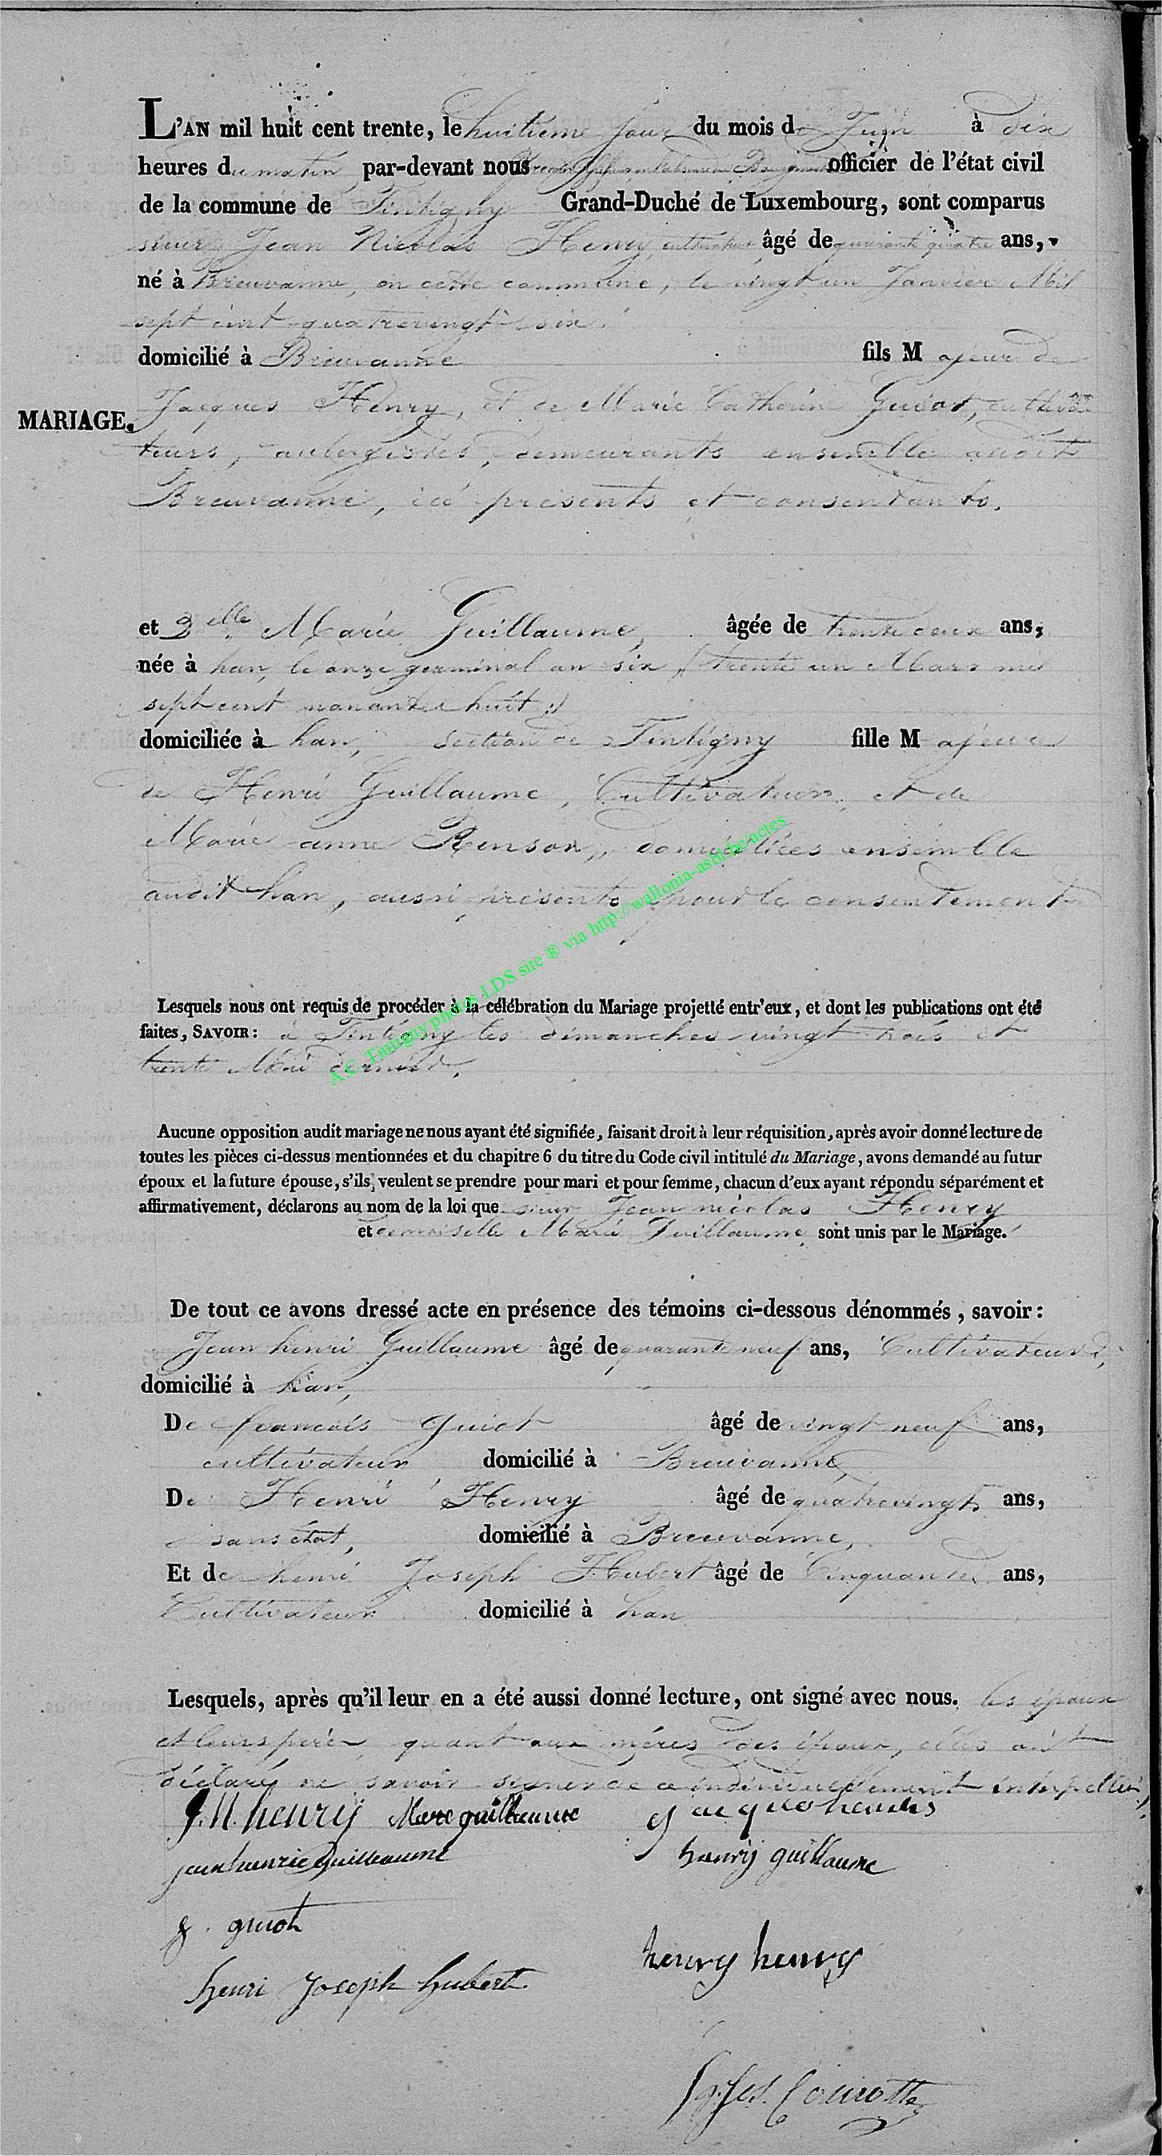 L'AN mil huit cent trente, le huitieme jour du mois de Juin à dix
heures du matin par-devant nous officier de l'état civil
de la commune de Tintigny Grand-Duché de Luxembourg, sont comparus
sieur Jean Nicolas Henry, cultivateur âgé de quarante quatre ans,
né à Breuvanne, en cette commune, le vingt un Janvier Mil
sept cent quatrevingt six.
domicilié à Breuvanne fils Majeur de
Jacques Henry, et de Marie Catherine Guiot, cultiva
MARIAGE.
teurs, aubergistes, demeurants ensemble audit
Breuvanne, ici présents et consentants.
et Delle Marie Guillaume, âgée de trente deux ans,
née à han, le onze germinal an six (trente un Mars mil
sept cent nonante huit :)
domiciliée à han, section de Tintigny fille Majeure
de Henri Guillaume, Cultivateur, et de
Marie anne Renson, domiciliés ensemble
audit han, aussi présents pour le consentement
Lesquels nous ont requis de procéder à la célébration du Mariage projetté entr'eux, et dont les publications ont été
faites, SAVOIR : à Tintigny les dimanches vingt trois et
trente Mai dernier.
Aucune opposition audit mariage ne nous ayant été signifiée, faisant droit à leur réquisition, après avoir donné lecture de
toutes les pièces ci-dessus mentionnées et du chapitre 6 du titre du Code civil intitulé du Mariage, avons demandé au futur
époux et la future épouse, s'ils veulent se prendre pour mari et pour femme, chacun d'eux ayant répondu séparément et
affirmativement, déclarons au nom de la loi que sieur Jean nicolas Henry
et demoiselle Marie Guillaume sont unis par le Mariage.
De tout ce avons dressé acte en présence des témoins ci-dessous dénommés, savoir :
Jean henri Guillaume âgé de quarante neuf ans, Cultivateur,
domicilié à han,
De francois Guiot âgé de vingt neuf ans,
cultivateur domicilié à Breuvanne,
De Henri Henry âgé de quatrevingt ans,
sans état, domicilié à Breuvanne,
Et de henri Joseph Hubert âgé de Cinquante ans,
Cultivateur domicilié à han
Lesquels, après qu'il leur en a été aussi donné lecture, ont signé avec nous. les époux
et leurs pères, quant aux mères des époux, elles ont
déclaré ne savoir signer de ce individuellement interpellées,
J.N. henry Marie guillaume
jean henrie Guilleaume henry guillaume
f. guiot
henry henry
henri Joseph hubert
A.C. Tintigny photos LDS site ® via http://wallonia-asbl.be/actes